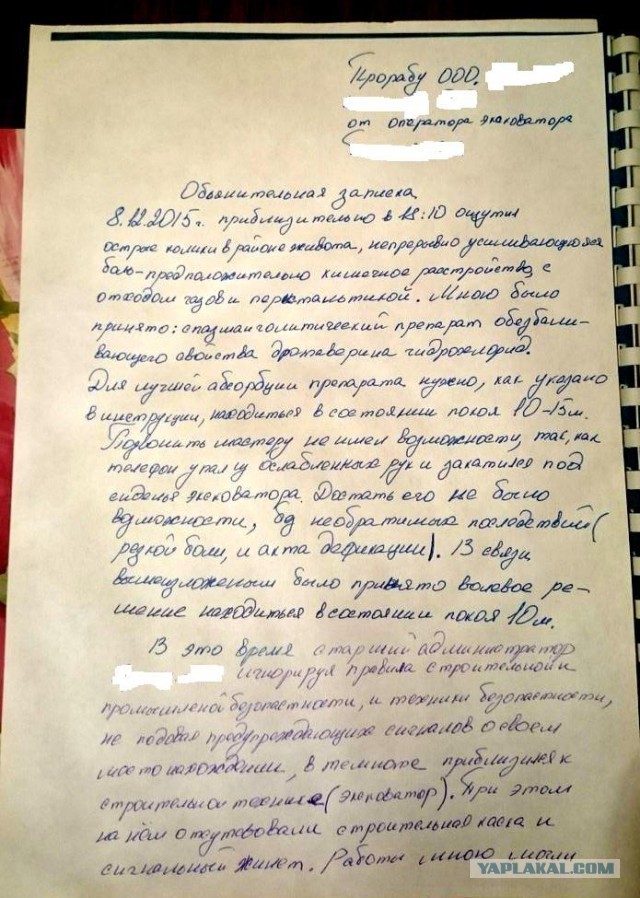 Прорабу ООО.
от оператора экскаватора
Обьянительная записка
8.12.2015г. приблизительно в 18:10 ощутил
острые колики в районе живота, непрерывно усиливающуюся
боль-предположительно кишечное растройство, с
отходом газов и перистальтикой. Мною было
принято: спазманголитический препарат обезбали-
вающего свойства дротаверина гидрохлорид.
Для лучшей абсорбции препарата нужно, как указано
в инструкции, находиться в состоянии покоя 10-15м.
Позвонить мастеру не имел возможности, так, как
телефон упал из ослабленных рук и закатился под
сиденья экскаватора. Достать его не было
возможности, без необратимых последствий(
резкой боли, и акта дефикации). В связи
вышеизложеным было принято волевое ре-
шение находиться в состоянии покоя 10м.
В это время старший администратор
игнорируя правила строительной и
промышленой безопастности, и техники безопастности,
не подовая предупреждающих сигналов о своем
место нахождении, в темноте приблизился к
строительной технике (экскаватор). При этом
на нём отсутвовали строительная каска и
сигнальный жилет. Работы мною могли
YAPLAKAL.COM